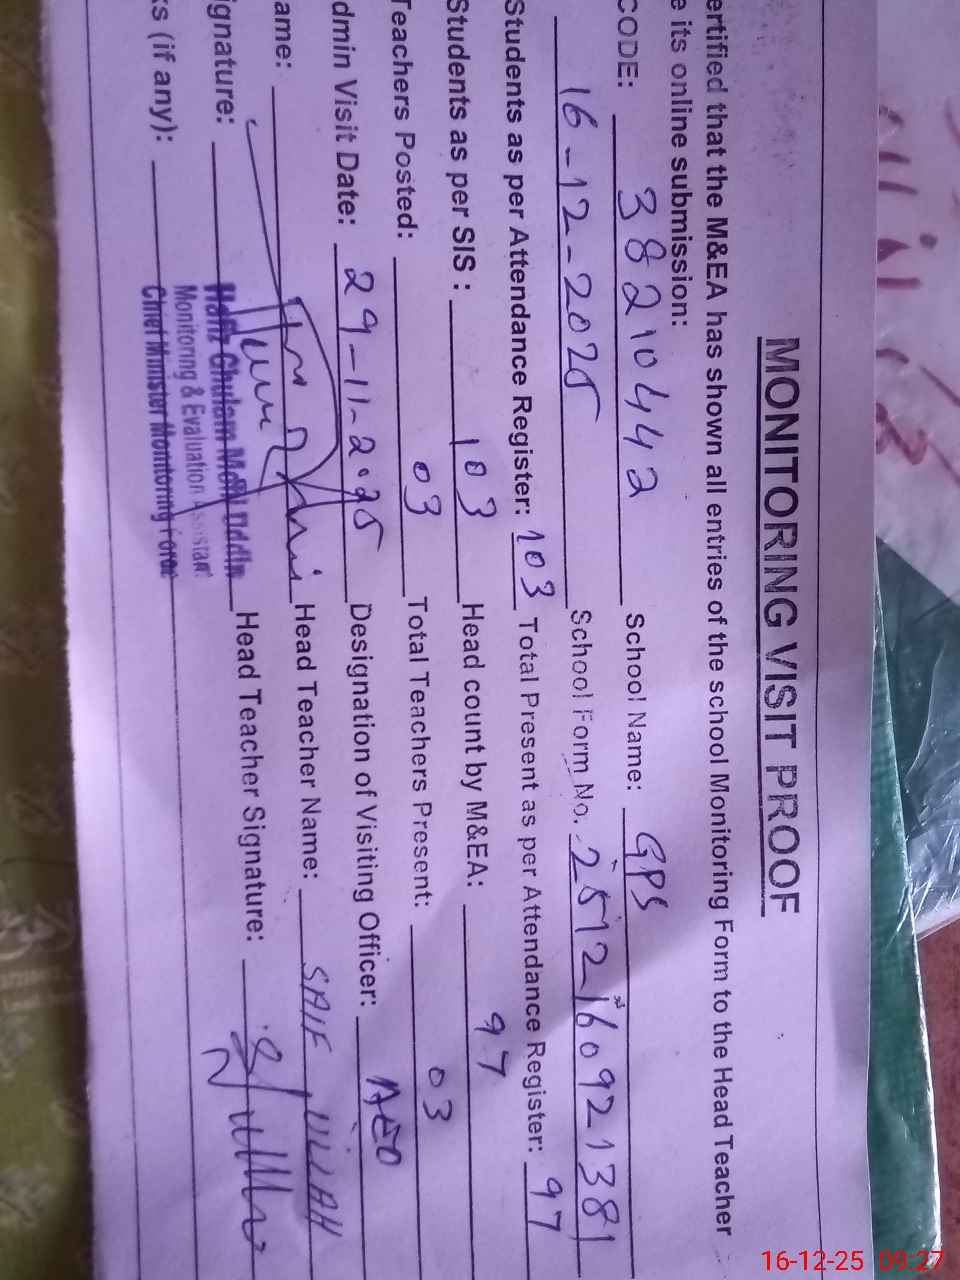 MONITORING VISIT PROOF
ertified that the M&EA has shown all entries of the school Monitoring Form to the Head Teacher
e its online submission:
CODE: 38210442 School Name: GPS
16-12-2025 School Form No. 2512160921381
Students as per Attendance Register: 103 Total Present as per Attendance Register: 97
Students as per SIS : 103 Head count by M&EA: 97
Teachers Posted: 03 Total Teachers Present: 03
dmin Visit Date: 29-11-2025 Designation of Visiting Officer: AEO
ame: Head Teacher Name: SAIF ULLAH
ignature: Head Teacher Signature:
Hafiz Ghulam Mohi Uddin
Monitoring & Evaluation Assistant
ks (if any): Chief Minister Monitoring Force
16-12-25 09:27